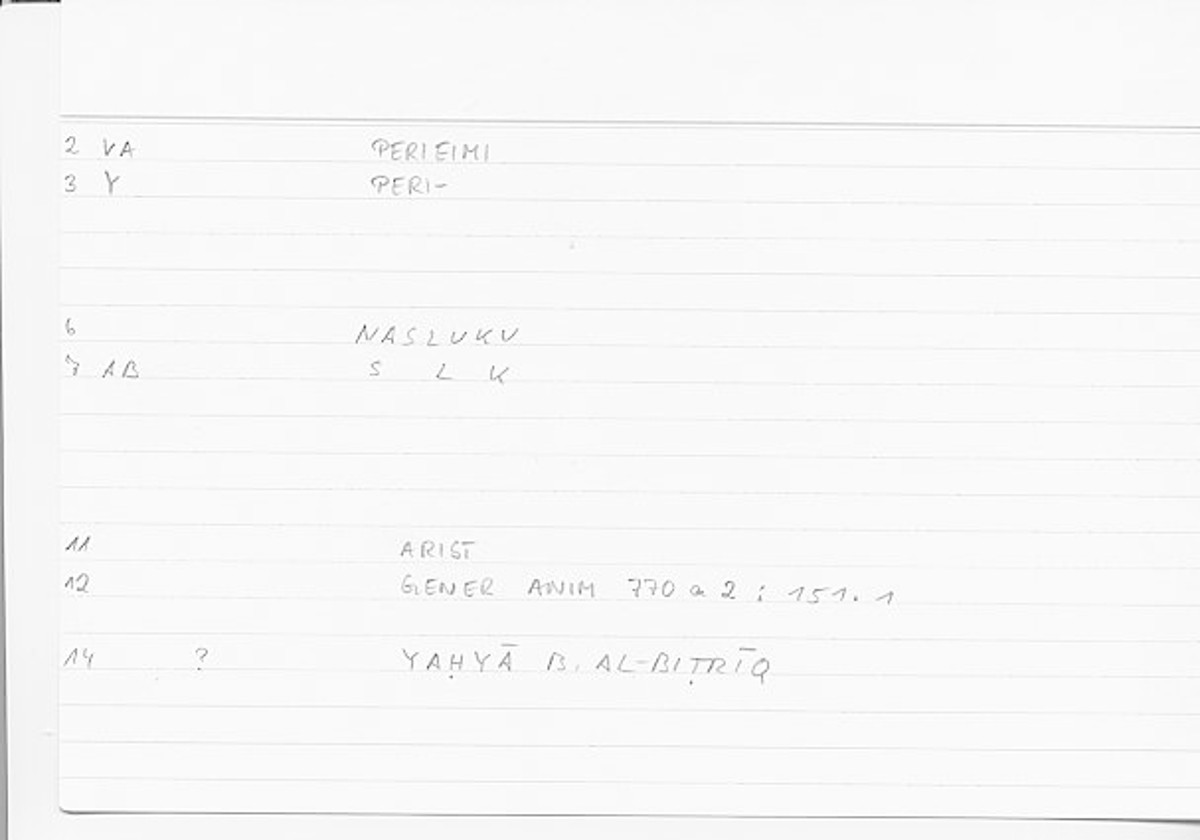 2 VA PERIEIMI
3 Y PERI-
6 NASLUKU
7 AB S L K
11 ARIST
12 GENER ANIM 770 a 2 : 151. 1
14 ? YAḤYĀ B. AL-BIṬRĪQ